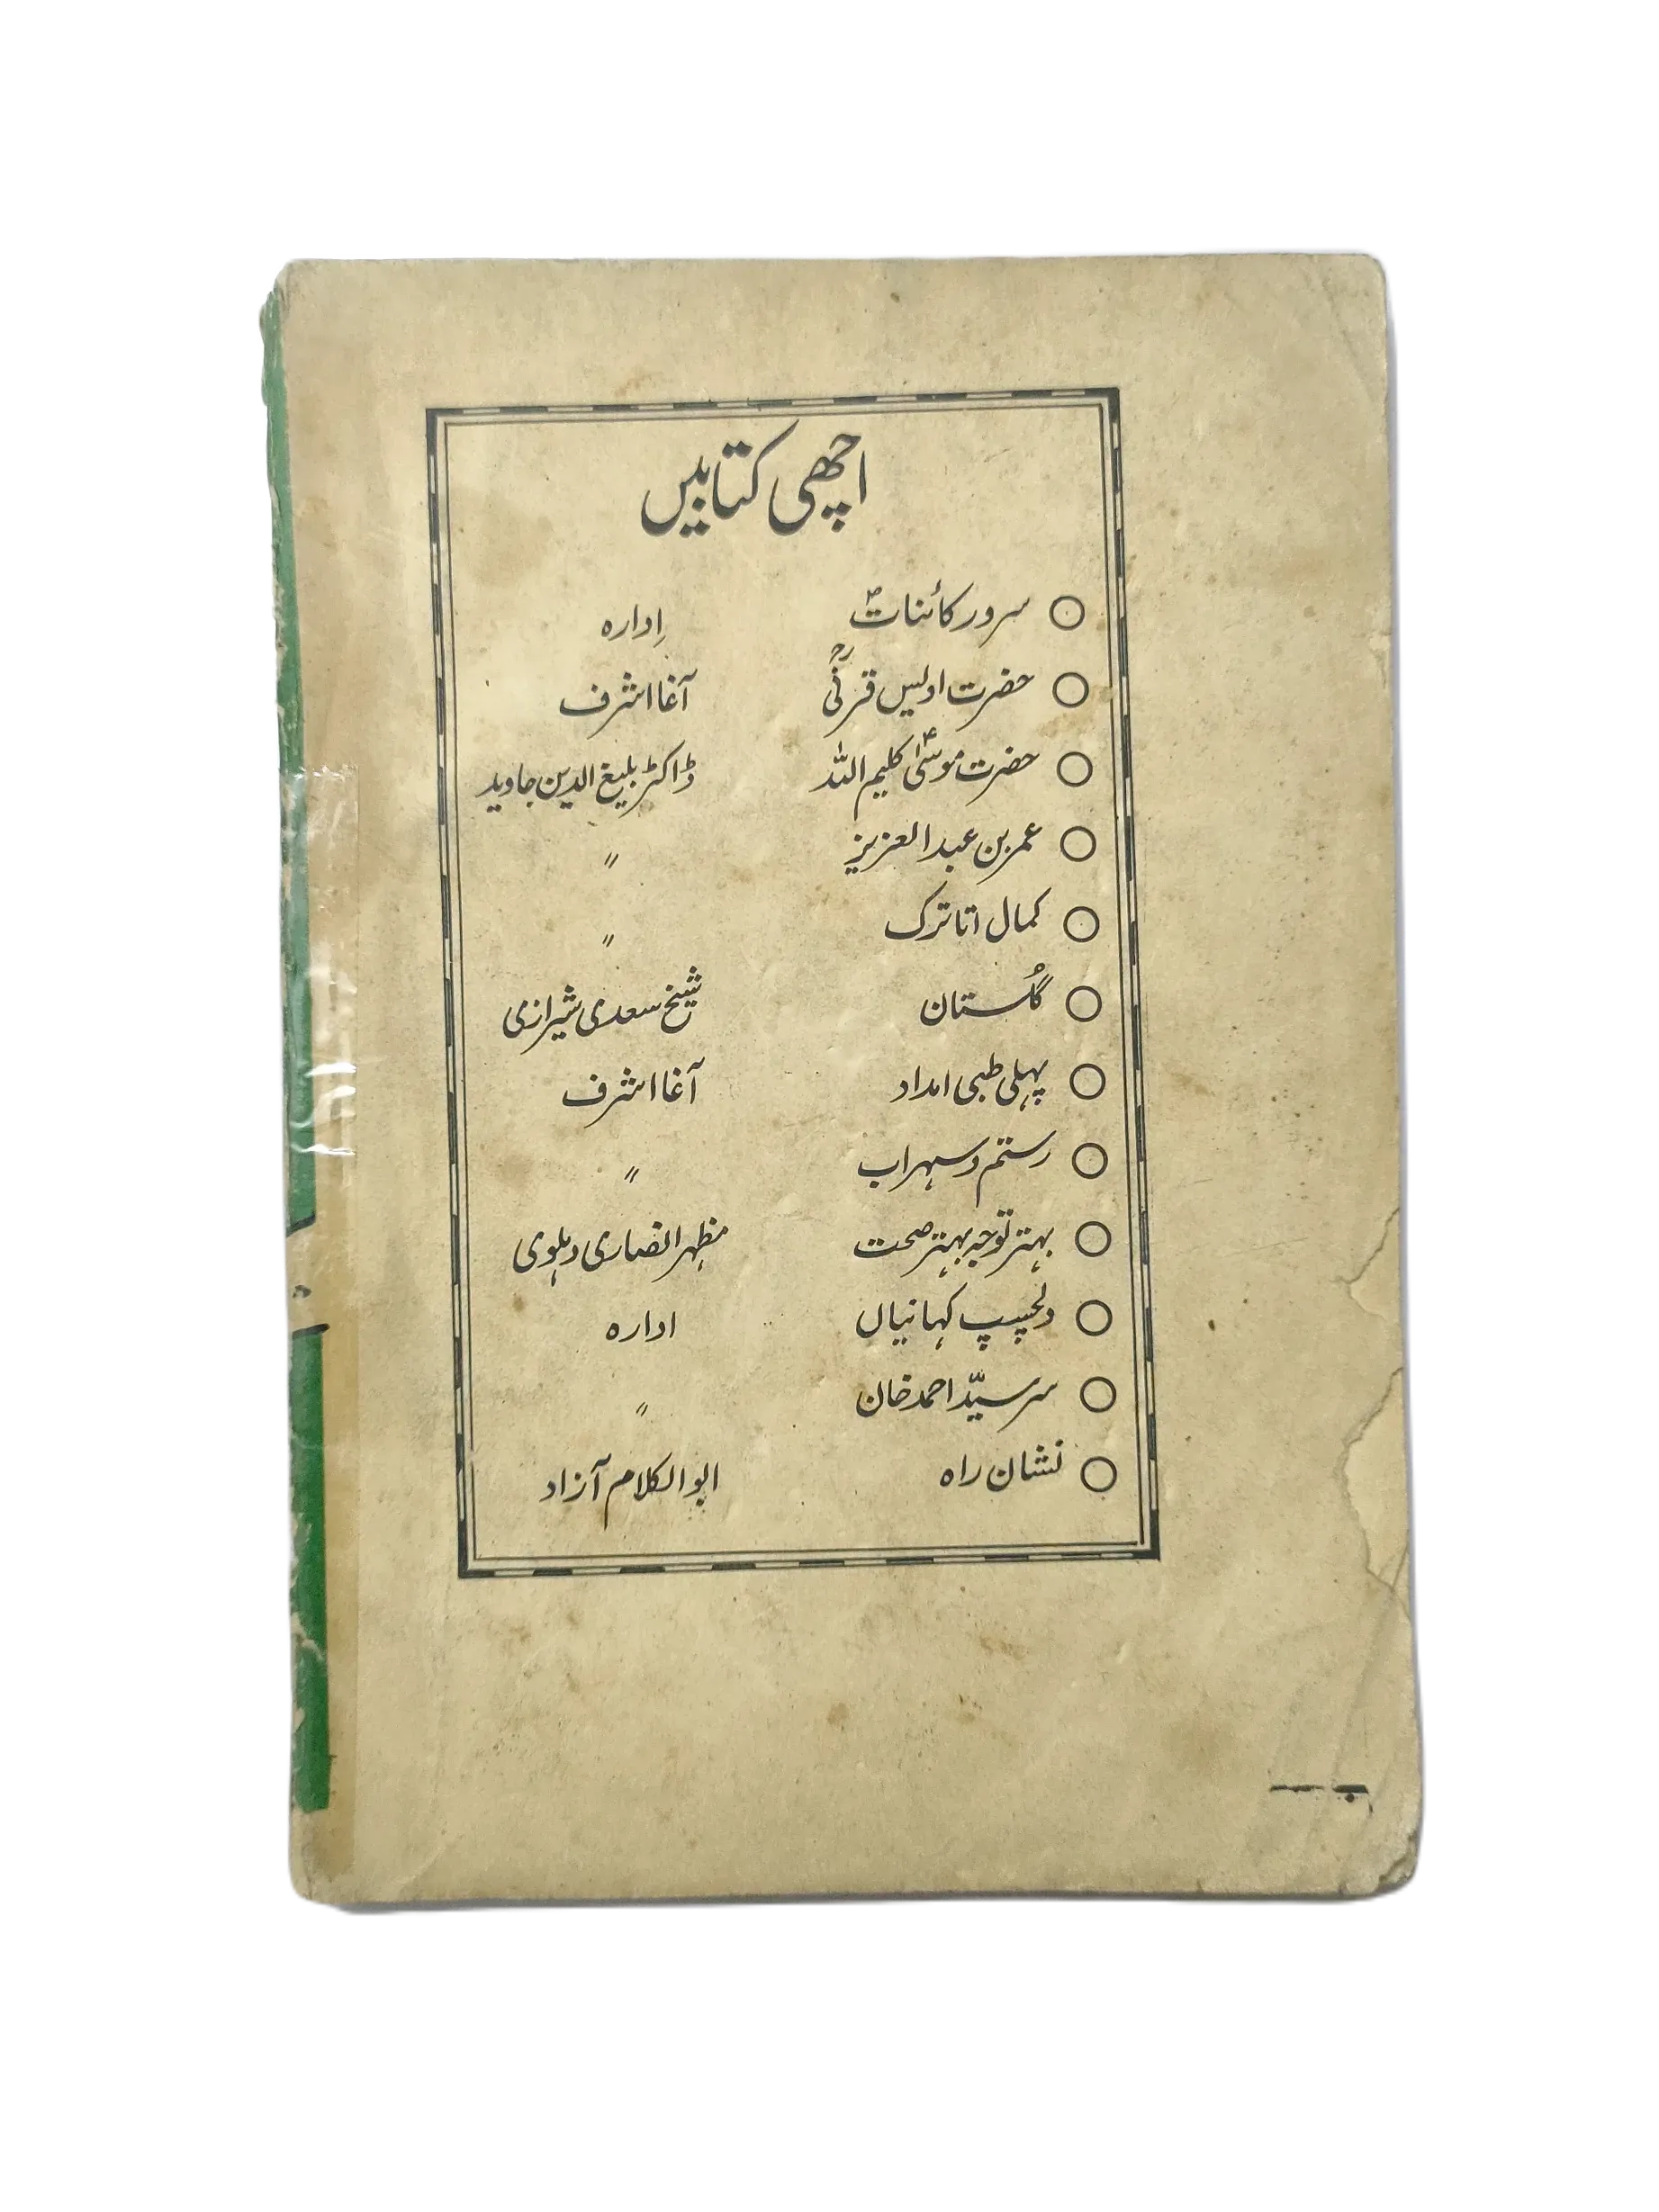 اچھی کتابیں
○ سرور کائناتؐ ادارہ
○ حضرت اویس قرنیؒ آغا اشرف
○ حضرت موسیٰؑ کلیم اللہ ڈاکٹر بلیغ الدین جاوید
○ عمر بن عبدالعزیز 〃
○ کمال اتاترک 〃
○ گلستان شیخ سعدی شیرازی
○ پہلی طبی امداد آغا اشرف
○ رستم و سہراب 〃
○ بہتر توجہ بہتر صحت مظہر انصاری دہلوی
○ دلچسپ کہانیاں ادارہ
○ سر سیّد احمد خان 〃
○ نشان راہ ابوالکلام آزاد